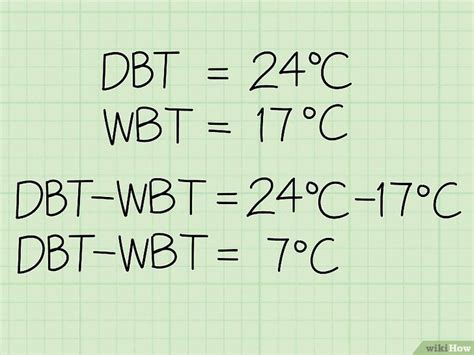 DBT = 24°C
WBT = 17°C
DBT-WBT = 24°C-17°C
DBT-WBT = 7°C
wikiHow